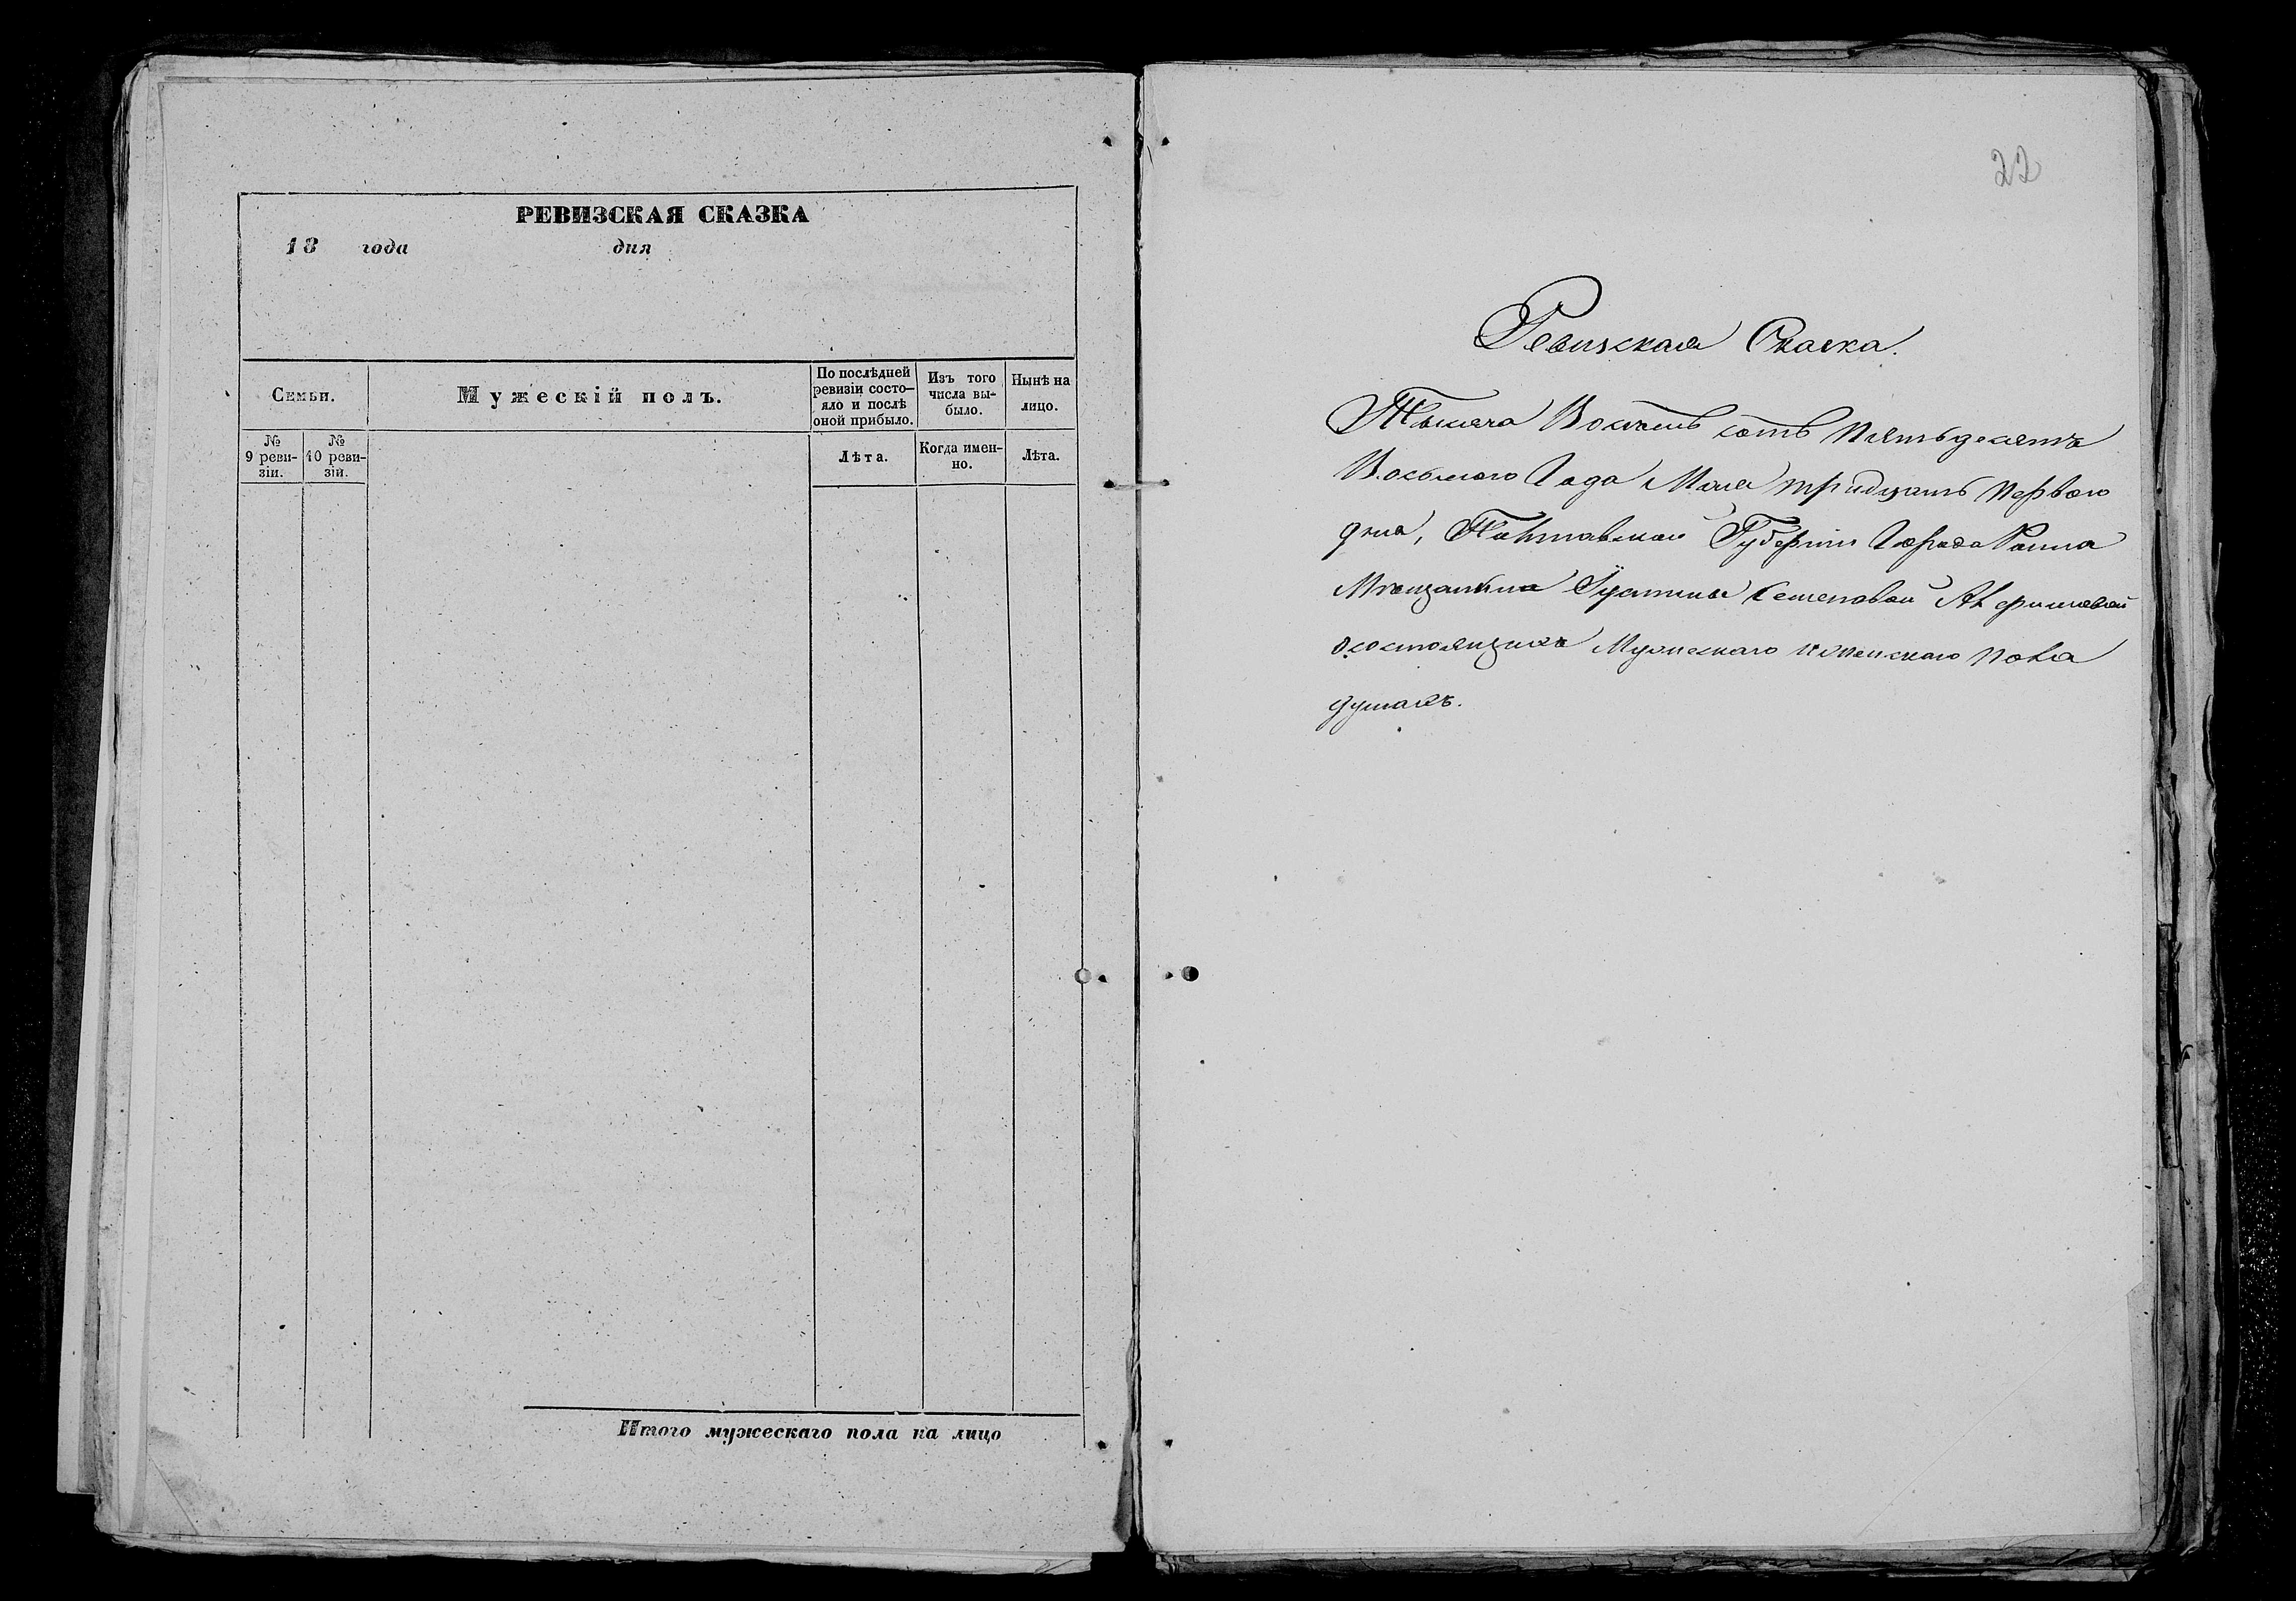 РЕВИЗСКАЯ СКАЗКА
18 года дня
Семьи.
Мужескій полъ.
По послѣдней ревизіи состо-
яло и послѣ
оной прибыло.
Изъ того
числа вы-
было.
Нынѣ на
лицо.
№
9 реви-
зіи.
№
10 реви-
зіи.
Лѣта.
Когда имен-
но.
Лѣта.
Итого мужескаго пола на лицо
22
Ревизская Сказка.
Тысяча Восемь сотъ Пятьдесятъ
Восьмого Года Мая тридцать Первого
дня, Полтавской Губерніи Города Ромна
Мѣщанина Семеновой
о состоящихъ Мужескаго и женскаго Пола
душахъ.